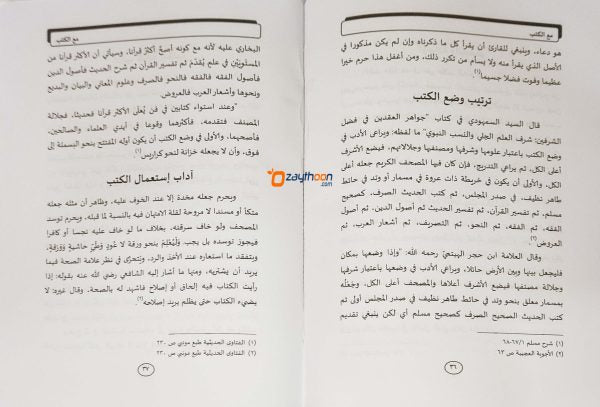 مع الكتب
هو دعاء، وينبغي للقارئ أن يقرأ كل ما ذكرناه وإن لم يكن مذكورا في
الأصل الذي يقرأ منه ولا يسأم من تكرر ذلك، ومن أغفل هذا حرم خيرا
عظيما وفوت فضلا جسيما(١)
ترتيب وضع الكتب
قال السيد السمهودي في كتاب "جواهر العقدين في فضل
الشرفين: شرف العلم الجلي والنسب النبوي" ما لفظه: ويراعى الأدب في
وضع الكتب باعتبار علومها وشرفها ومصنفها وجلالاتهم، فيضع الأشرف
أعلى الكل، ثم يراعي التدريج، فإن كان فيها المصحف الكريم جعله أعلى
الكل، والأولى أن يكون في خريطة ذات عروة في مسمار أو وتد في حائط
طاهر نظيف، في صدر المجلس، ثم كتب الحديث الصرف، كصحيح
مسلم، ثم تفسير القرآن، ثم تفسير الحديث ثم أصول الدين، ثم أصول
الفقه، ثم الفقه، ثم النحو، ثم التصريف، ثم أشعار العرب، ثم
العروض(٢)
وقال العلامة ابن حجر الهيتمي رحمه الله: "وإذا وضعها بمكان
فليجعل بينها وبين الأرض حائلا، ويراعي الأدب في وضعها باعتبار شرفها
وجلالة مصنفها فيضع الأشرف أعلاها والمصحف أعلى الكل، وجعله
بمسمار معلق بنحو وتد في حائط طاهر نظيف في صدر المجلس أولى ثم
كتب الحديث الصحيح الصرف كصحيح مسلم أي لكن ينبغي تقديم
(١) شرح مسلم ٦٧/١-٦٨
(٢) الأجوبة العجيبة ص ٦٣
٣٦
مع الكتب
البخاري عليه لأنه مع كونه أصح أكثر قرآنا، وسيأتي أن الأكثر قرآنا من
المستويين في علم يقدم ثم تفسير القرآن ثم شرح الحديث فأصول الدين
فأصول الفقه فالفقه فالنحو والصرف وعلوم المعاني والبيان والبديع
ونحوها وأشعار العرب فالعروض.
"وعند استواء كتابين في فن يعلى الأكثر قرآنا فحديثا، فجلالة
المصنف فتقدمه، فأكثرهما وقوعا في أيدي العلماء والصالحين،
فأصحهما، والأولى في وضع الكتب أن يكون أوله المفتتح بنحو البسملة إلى
فوق، وأن لا يجعله خزانة لنحو كراريس(١)
آداب إستعمال الكتب
ويحرم جعله مخدة إلا عند الخوف عليه، وظاهر أن مثله جعله
متكأ أو مسندا لا مروحة لقلة الامتهان فيه بالنسبة لما قبله، ويحرم توسد
المصحف ولو خاف سرقته. بخلاف ما لو خاف عليه نجسا أو كافرا
فيجوز توسده بل يجب، وليعلم بنحو ورقة لا عود وطي حاشية وورقة،
ويتفقد ما استعاره عند الأخذ والرد، ويتحرى في نظر علامة الصحة فيما
يريد أن يشتريه، ومنها ما أشار إليه الشافعي رضي الله عنه بقوله: إذا
رأيت الكتاب فيه إلحاق أو إصلاح فاشهد له بالصحة. وقال غيره: لا
يضيء الكتاب حتى يظلم يريد إصلاحه(٢)
(١) الفتاوى الحديثية طبع موني ص ٢٣٠
(٢) الفتاوى الحديثية طبع موني ص ٢٣٠
٣٧
zaythoon.com